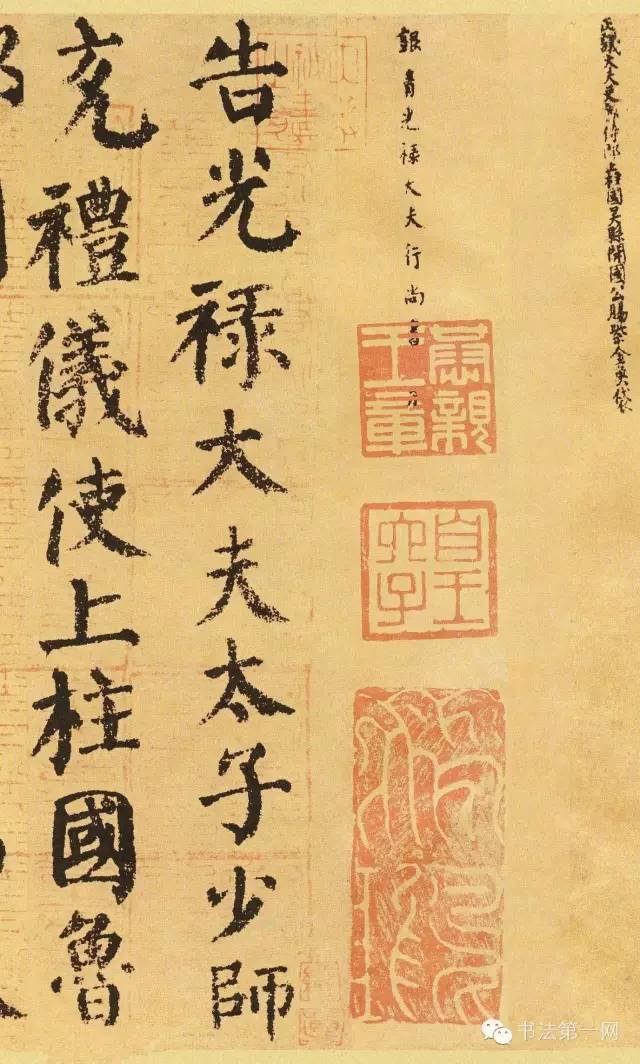 正議大夫吏部侍郎上柱國吳縣開國公賜紫金魚袋
銀青光祿大夫行尚書
肅親王章
皇六子
告光祿大夫太子少師
充禮儀使上柱國魯
书法第一网